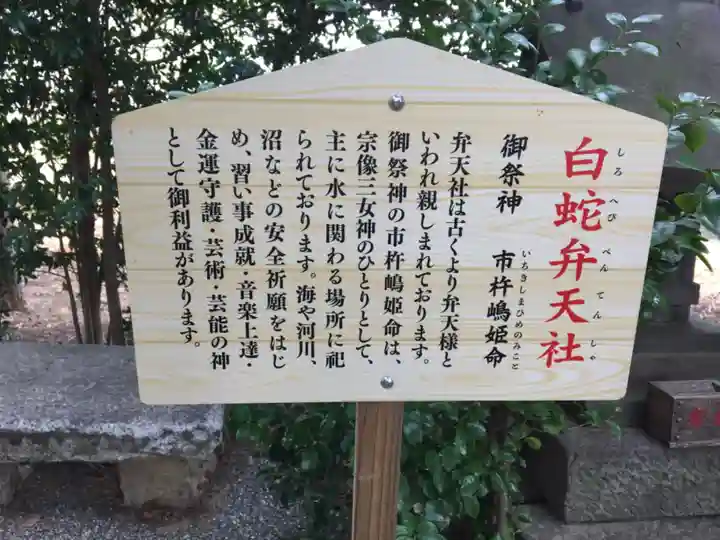 白蛇弁天社
しろへびべんてんしゃ
御祭神 市杵嶋姫命
いちきしまひめのみこと
弁天社は古くより弁天様と
いわれ親しまれております。
御祭神の市杵嶋姫命は、
宗像三女神のひとりとして、
主に水に関わる場所に祀
られております。海や河川、
沼などの安全祈願をはじ
め、習い事成就・音楽上達・
金運守護・芸術・芸能の神
として御利益があります。